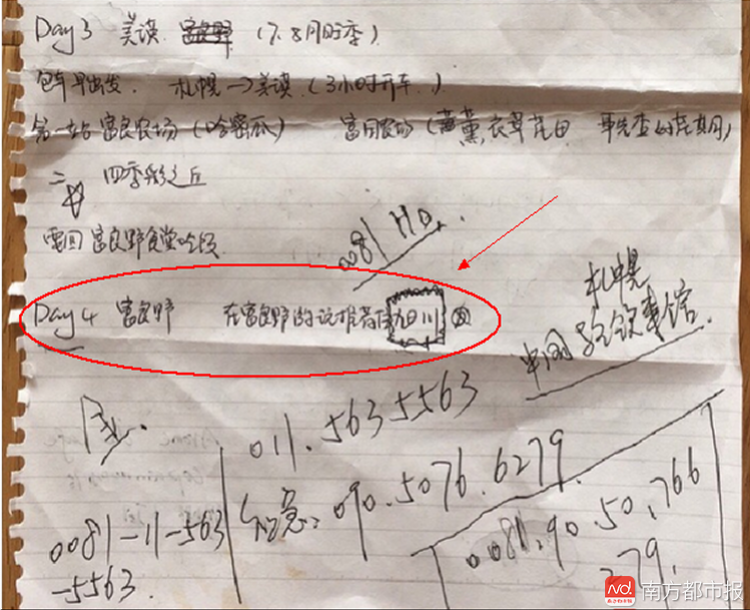 Day 3 美瑛 富良野 (7.8月旺季)
包车早出发. 札幌→美瑛 (3小时开车.)
第一站 富良农场 (哈密瓜) 富田农场 (薰衣草花田 事先查好花期)
二 四季彩之丘
要回 富良野食堂吃饭
0081 HD.
Day 4 富良野 在富良野的话推荐住旭川
札幌
中国总领事馆.
011.563 5563
0081-11-563
-5563.
紧急: 090.5076.6279
0081.90.50.766
279.
南方都市报